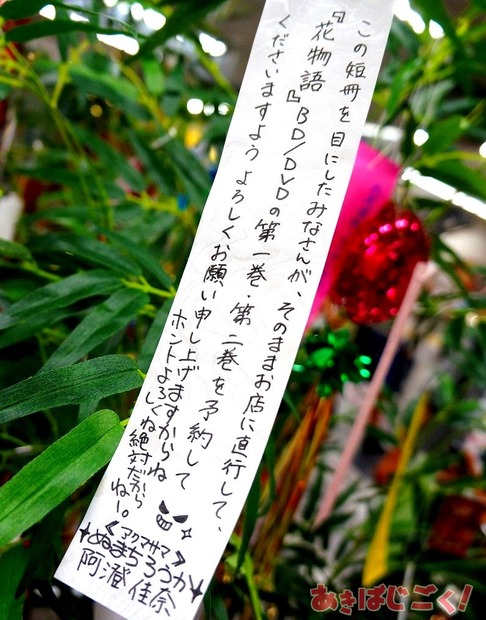 この短冊を目にしたみなさんが、そのままお店に直行して、
『花物語』BD/DVDの第一巻・第二巻を予約して
くださいますよう よろしくお願い申し上げますからね
ホントよろしくね絶対だから
ねー。
《アクマサマ》
ぬまちろうか
阿澄佳奈
あきばじごく!